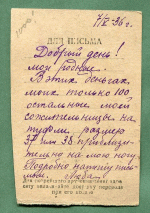 7/IX-36 г.
ДЛЯ ПИСЬМА
Добрый день!
мои родные.
В этих деньгах
моих только 100
остальные моей
сожительницы на
туфли. размер
37 или 38 приблизи-
тельно на мою ногу
Подробно напишу письмом